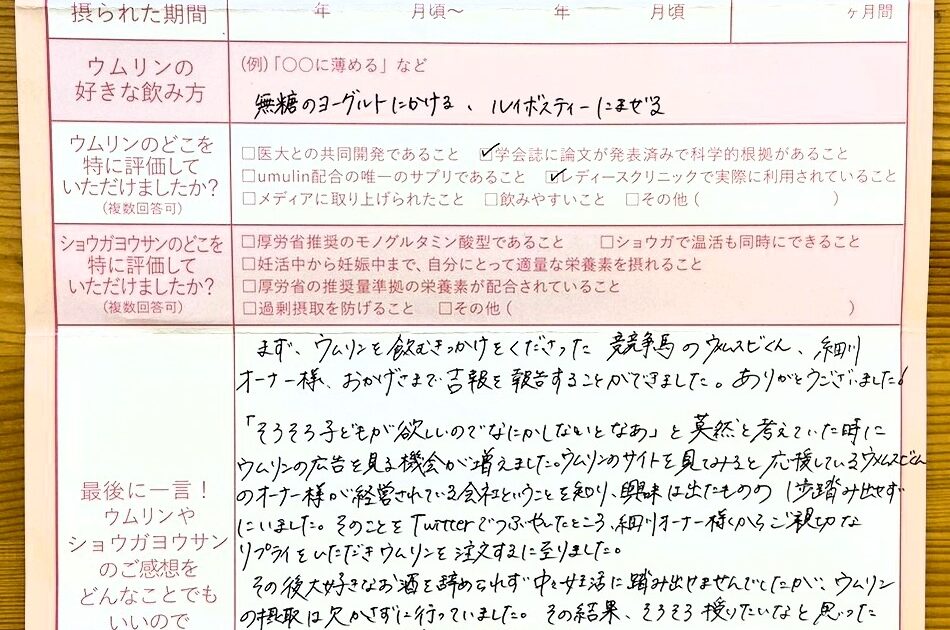 摂られた期間
年 月頃～ 年 月頃
ヶ月間
ウムリンの
好きな飲み方
(例)「〇〇に薄める」など
無糖のヨーグルトにかける、ルイボスティーにまぜる
ウムリンのどこを
特に評価して
いただけましたか?
(複数回答可)
□医大との共同開発であること ☑学会誌に論文が発表済みで科学的根拠があること
□umulin配合の唯一のサプリであること ☑レディースクリニックで実際に利用されていること
□メディアに取り上げられたこと □飲みやすいこと □その他 ( )
ショウガヨウサンのどこを
特に評価して
いただけましたか?
(複数回答可)
□厚労省推奨のモノグルタミン酸型であること □ショウガで温活も同時にできること
□妊活中から妊娠中まで、自分にとって適量な栄養素を摂れること
□厚労省の推奨量準拠の栄養素が配合されていること
□過剰摂取を防げること □その他 ( )
最後に一言!
ウムリンや
ショウガヨウサン
のご感想を
どんなことでも
いいので
まず、ウムリンを飲むきっかけをくださった 競争馬のウムスビくん、細川
オーナー様、おかげさまで吉報を報告することができました。ありがとうございました!
「そろそろ子どもが欲しいのでなにかしないとなあ」と莫然と考えていた時に
ウムリンの広告を見る機会が増えました。ウムリンのサイトを見てみると応援しているウムスビくん
のオーナー様が経営されている会社ということを知り、興味は出たものの1歩踏み出せず
にいました。そのことをTwitterでつぶやいたところ、細川オーナー様からご親切な
リプライをいただきウムリンを注文するに至りました。
その後大好きなお酒を辞められず中々妊活に踏み出せませんでしたが、ウムリン
の摂取は欠かさずに行っていました。その結果、そろそろ授りたいなと思った